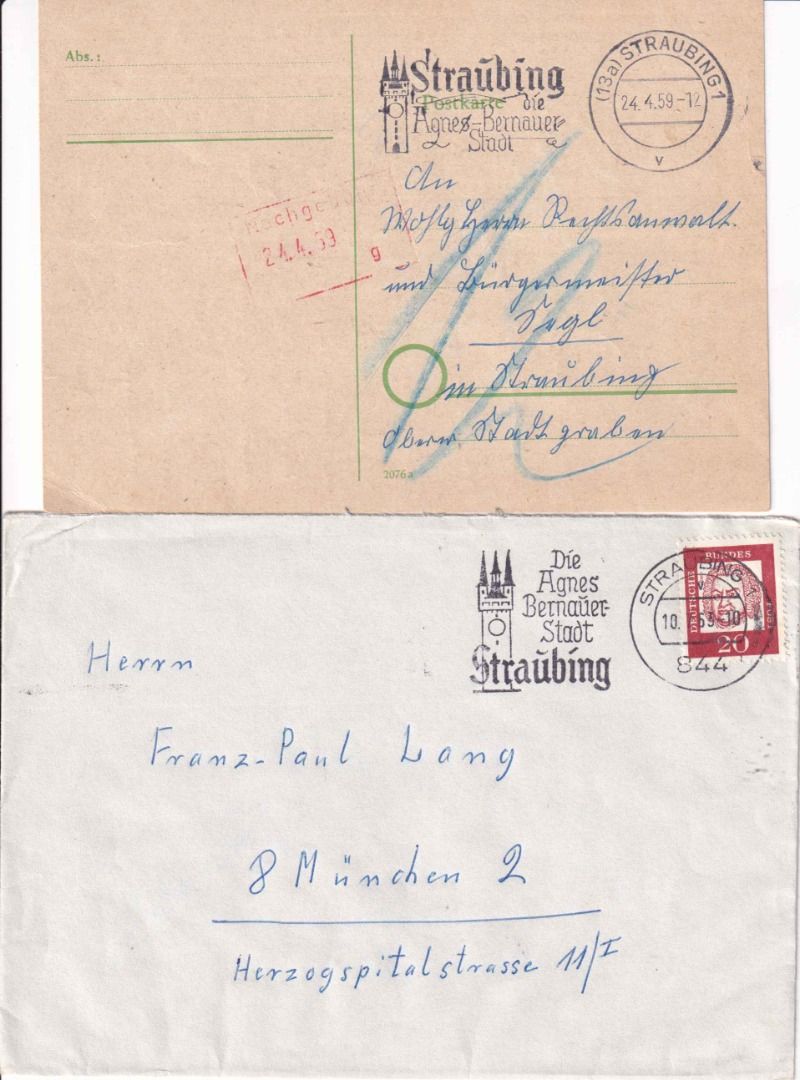 Abs.:
Straubing
Postkarte die
Agnes-Bernauer-
Stadt
(13a) STRAUBING 1
24.4.59-12
v
Nachge
24.4.59
g
An
Wohlg Herrn Rechtsanwalt
und Bürgermeister
Segl
in Straubing
oberer Stadtgraben
2076a
Die
Agnes
Bernauer-
Stadt
Straubing
STRAUBING 1
v
10. 69-10
844
DEUTSCHE BUNDESPOST
20
Herrn
Franz-Paul Lang
8 München 2
Herzogspitalstrasse 11/I